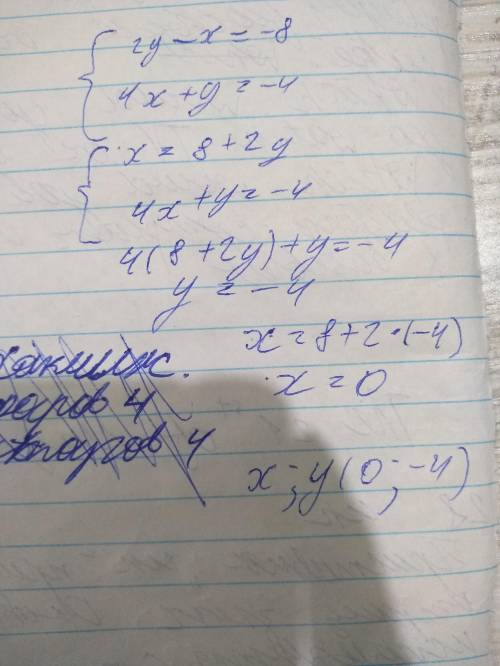 2y - x = -8
4x + y = -4
x = 8 + 2y
4x + y = -4
4(8 + 2y) + y = -4
y = -4
x = 8 + 2 · (-4)
x = 0
4
4
x; y (0; -4)